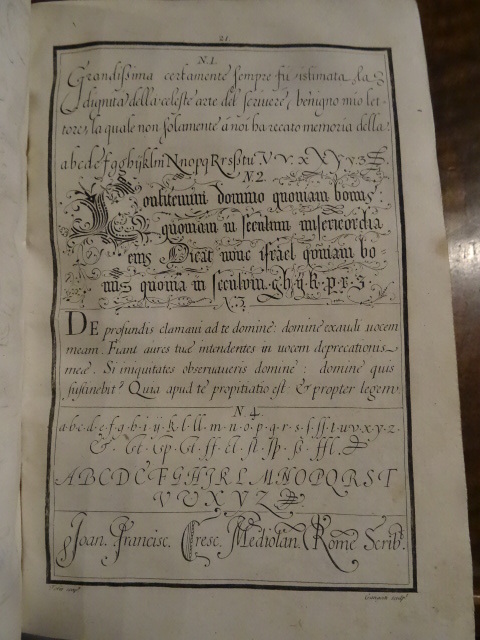 21.
N.1.
Grandissima certamente sempre fù istimata la
dignità della celeste arte del scriuere, benigno mio let-
tore, la quale non solamente à noi ha recato memoria della
a b c d e f g g h i j k l m N n o p q R r s ß t u V v x X Y y z
N2.
Confitemini domino quoniam bonus
quoniam in seculum misericordia
eius Dicat nunc israel quoniam bo-
nus quonia in seculum. g. h. ÿ. k. p. r. z
N.3.
DE profundis clamaui ad te domine: domine exaudi uocem
meam. Fiant aures tuæ intendentes in uocem deprecationis
meæ. Si iniquitates obseruaueris domine: domine quis
sustinebit? Quia apud te propitiatio est: & propter legem
N 4.
a·b·c·d·e·f·g·h·i·ÿ·k·l·ll·m·n·o·p·q·r·s·ſ·ſſ·t·u·v·x·y·z·
A B C D E F G H I K L M N O P Q R S T
V U X Y Z
Ioan. Francisc. Cresc. Mediolan. Romę Scrib.
sculp.